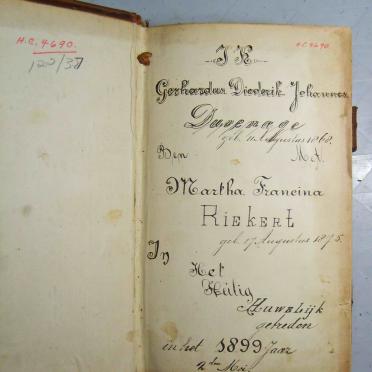 H.C. 4690.
122/37
H.C. 4690.
IK
Gerhardus Diederik Johannes
Duvenage
geb. 11 Augustus 1868.
Ben Met
Martha Francina
RIEKERT
geb. 17 Augustus 1875.
In
Het
Heilig
Huwelijk
getreden
in het 1899 Jaar
2den Mei